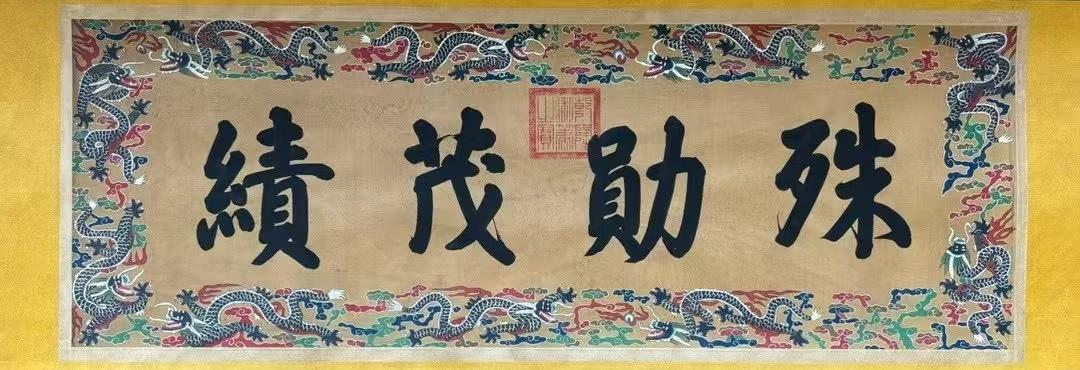 殊勛茂績